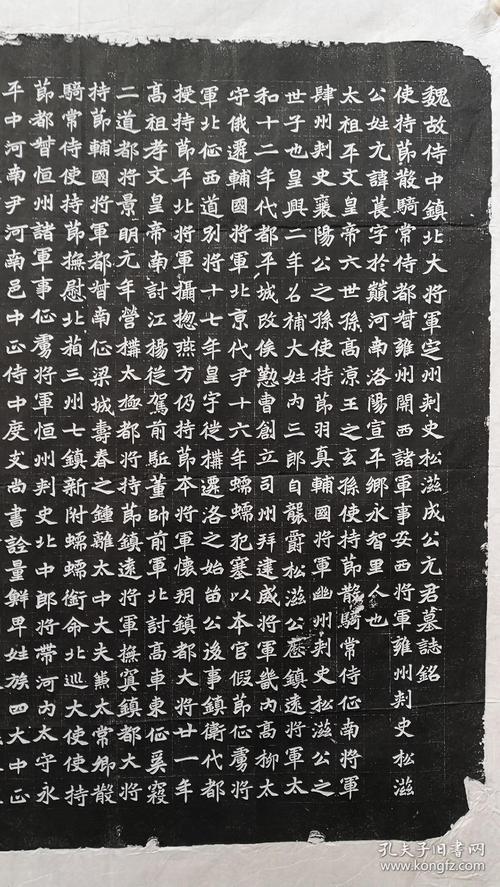 魏故侍中鎮北大將軍定州刺史松滋成公元君墓誌銘
使持節散騎常侍都督雍州關西諸軍事安西將軍雍州刺史松滋
公姓元諱萇字於巔河南洛陽宣平鄉永智里人也
太祖平文皇帝六世孫高涼王之玄孫使持節散騎常侍征南將軍
肆州刺史襄陽公之孫使持節羽真輔國將軍幽州刺史松滋公之
世子也皇興二年召補大姓內三郎自襲爵松滋公歷鎮遠將軍太
和十二年代都平城改俟懃曹創立司州拜建威將軍畿內高柳太
守俄遷輔國將軍北京代尹十六年蠕蠕犯塞以本官假節征虜將
軍北征西道別將十七年皇宇徙構遷洛之始留公後事鎮衛代都
授持節平北將軍攝揔燕方仍持節本將軍懷朔鎮都大將廿一年
高祖孝文皇帝南討江楊從駕前駈董帥前軍北討高車東征奚寇
二道都將景明元年營構太極都將持節鎮遠將軍撫冥鎮都大將
持節輔國將軍都督南征梁城壽春之鍾離太中大夫兼太常卿散
騎常侍使持節撫慰北蕃三州七鎮新附蠕蠕銜命北巡大使使持
節都督恒州諸軍事征虜將軍恒州刺史北中郎將帶河內太守永
平中河南尹河南邑中正侍中度支尚書詮量鮮卑姓族四大中正
孔夫子旧书网
www.kongfz.com